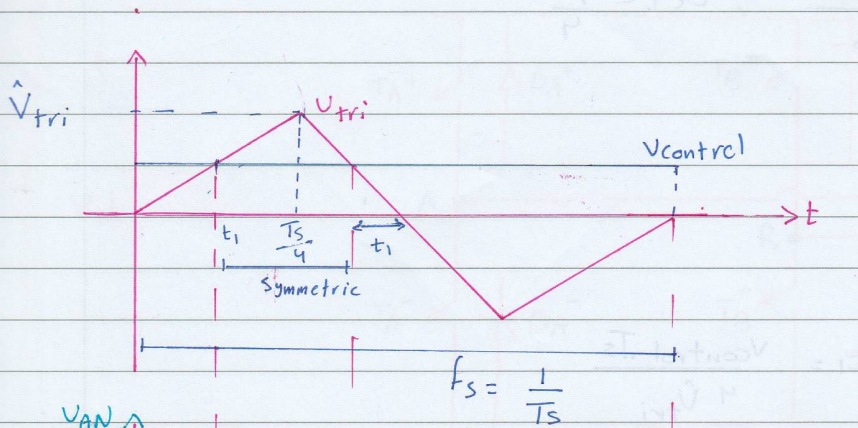 V̂tri
Utri
Vcontrol
t
t1
Ts/4
t1
Symmetric
fs = 1/Ts
VAN